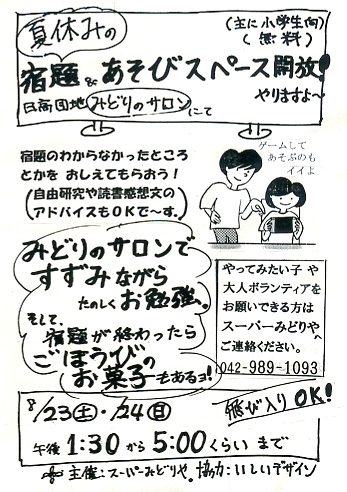 夏休みの
(主に小学生向)
(無料)
宿題&あそびスペース開放!
日高団地 みどりのサロン にて
やりますよ〜
宿題のわからなかったところ
とかを おしえてもらおう!
(自由研究や読書感想文の
アドバイスもOKで〜す。)
ゲームして
あそぶのも
イイよ
みどりのサロンで
すずみながら
たのしく お勉強。
そして、
宿題が終わったら
ごほうびの
お菓子もあるヨ!
やってみたい子 や
大人ボランティアを
お願いできる方は
スーパーみどりやへ
ご連絡ください。
042-989-1093
8/23(土)・/24(日)
飛び入りOK!
午後 1:30 から 5:00 くらい まで
主催:スーパーみどりや。協力:いしいデザイン